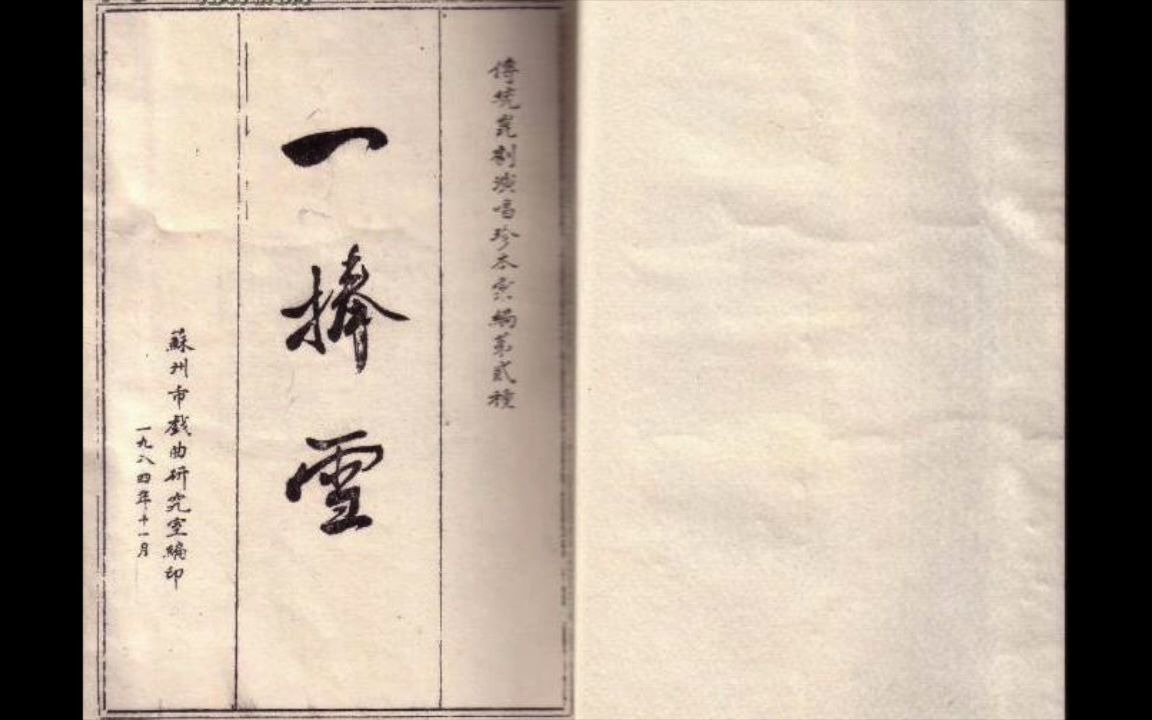 傳統崑劇演唱珍本彙編第貳種
一捧雪
蘇州市戲曲研究室編印
一九八四年十一月